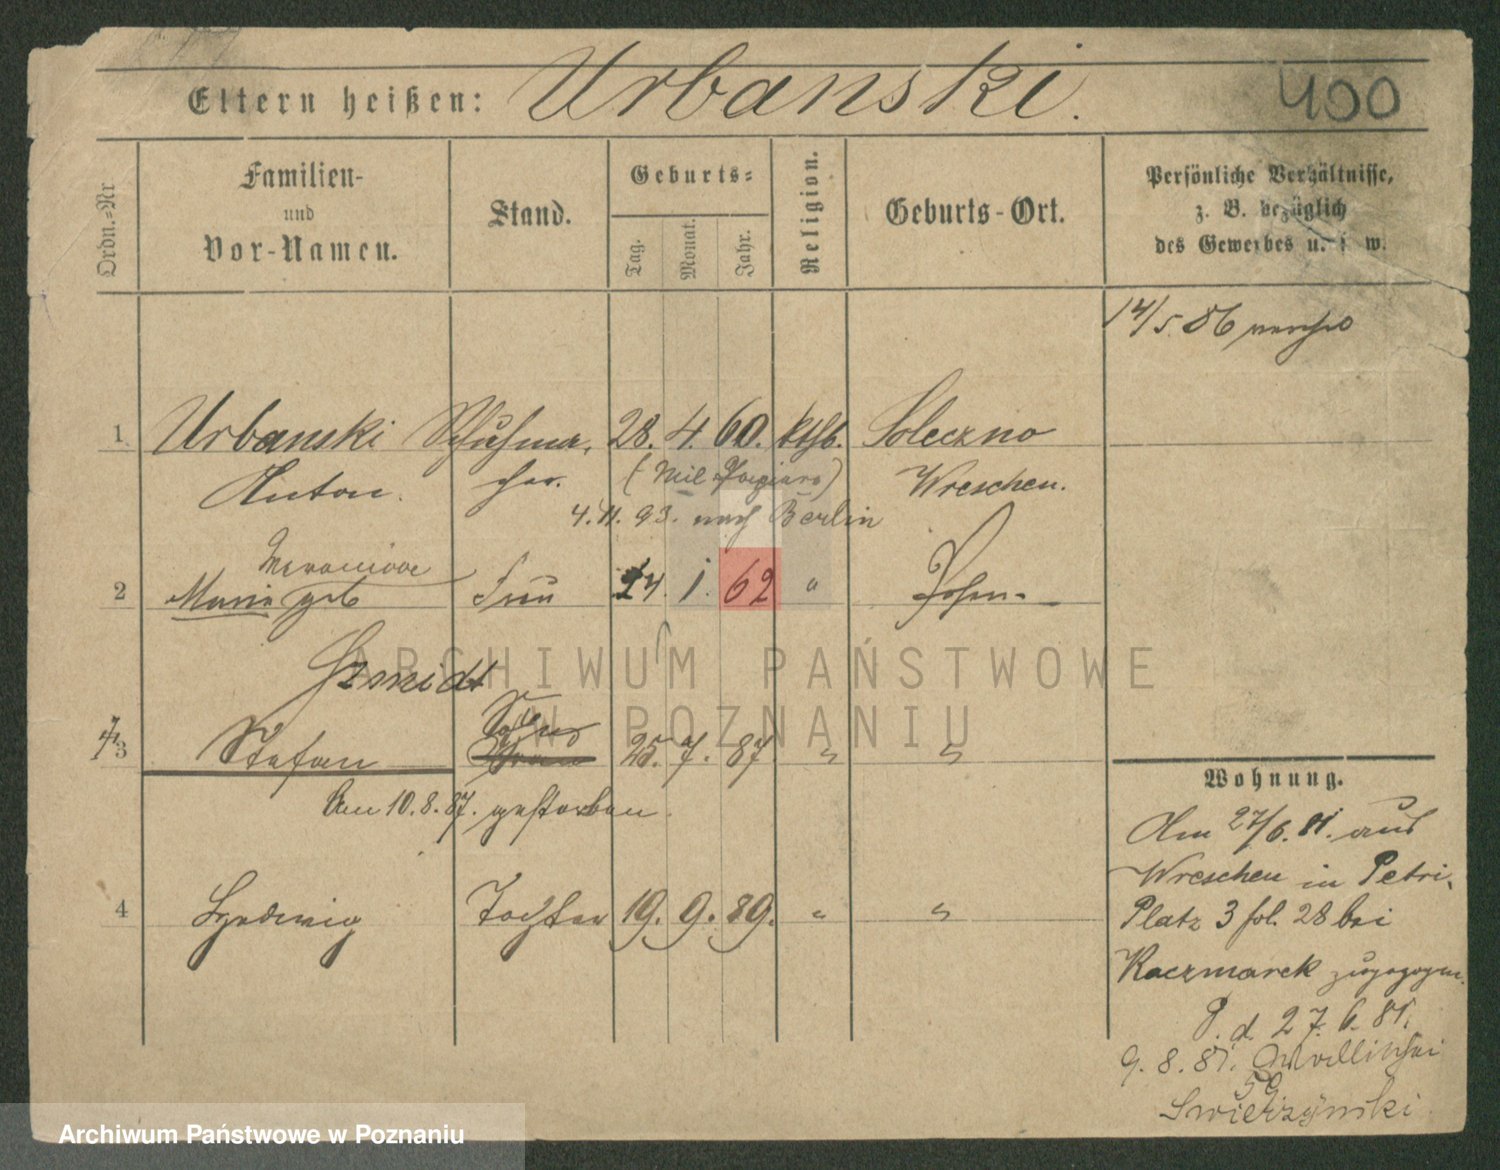 Eltern heißen: Urbanski.
400
Ordn.=Nr
Familien-
und
Vor-Namen.
Stand.
Geburts=
Tag.
Monat.
Jahr.
Religion.
Geburts-Ort.
Persönliche Verhältnisse,
z. B. bezüglich
des Gewerbes u. s w.
14/5. 86
1 Urbanski Schuhma, 28. 4. 60. kthl. Soleczno
Anton. cher. (Mil Wreschen.
4. 11. 93. nach Berlin
2 Marie geb Frau 24. 1. 62 " Posen.
Szmidt
3 Stefan Sohn 25. 7. 87 " "
Am 10. 8. 87. gestorben.
4 Hedwig Tochter 19. 9. 89. " "
Wohnung.
Am 27/6. 81. aus
Wreschen in Petri-
Platz 3 fol. 28 bei
Kaczmarek zugezogen.
P. d. 27. 6. 81.
9. 8. 81.
Swierzynski
ARCHIWUM PAŃSTWOWE
W POZNANIU
Archiwum Państwowe w Poznaniu